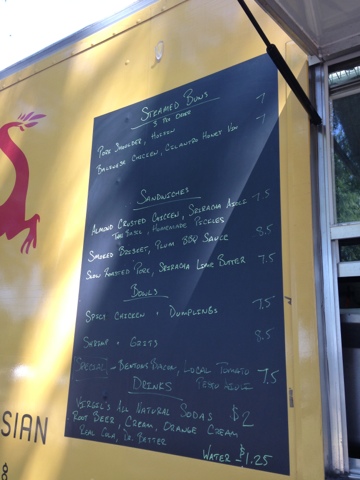 STEAMED BUNS
3 PER ORDER
PORK SHOULDER, HOISIN 7
BALINESE CHICKEN, CILANTRO HONEY 7
SANDWICHES
ALMOND CRUSTED CHICKEN, SRIRACHA AIOLI 7.5
THAI BASIL, HOMEMADE PICKLES
SMOKED BRISKET, PLUM BBQ SAUCE 8.5
SLOW ROASTED PORK, SRIRACHA LIME BUTTER 7.5
BOWLS
SPICY CHICKEN + DUMPLINGS 7.5
SHRIMP + GRITS 8.5
SPECIAL - BENTONS BACON, LOCAL TOMATO
PESTO AIOLI 7.5
DRINKS
VIRGIL'S ALL NATURAL SODAS $2
ROOT BEER, CREAM, ORANGE CREAM
REAL COLA, DR. BETTER
WATER $1.25
SIAN